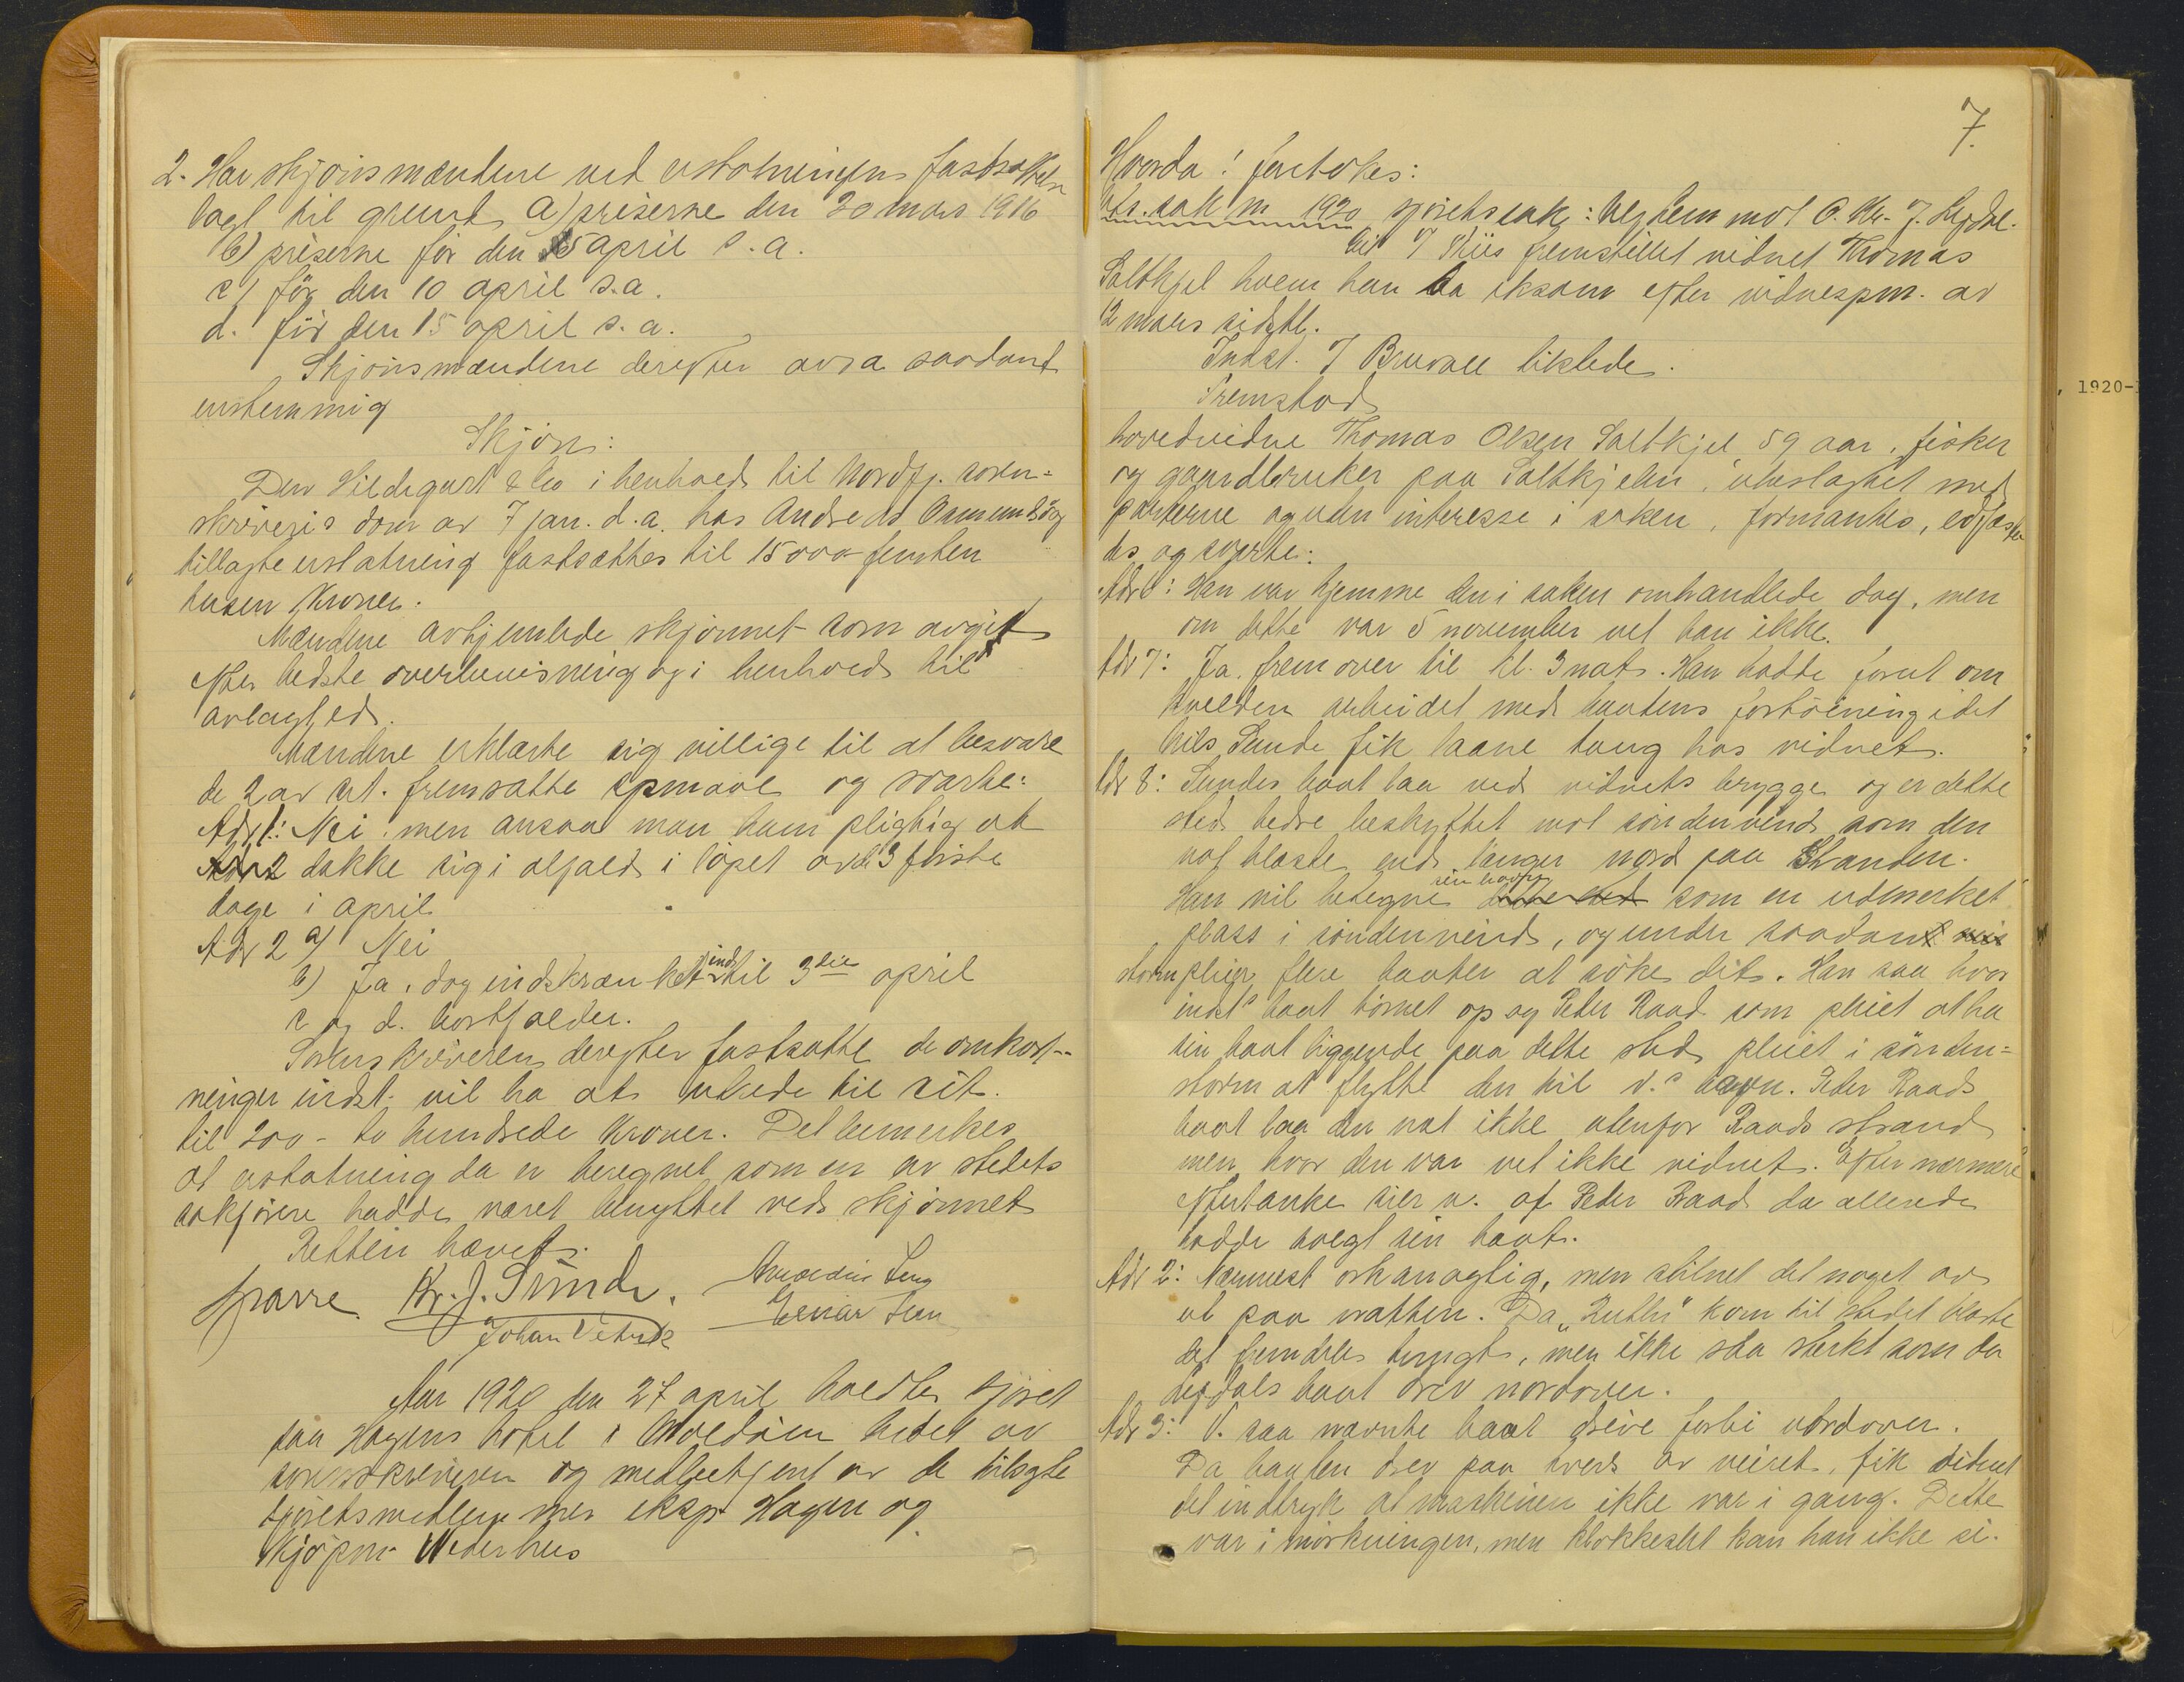 2. Har skjønsmændene ved erstatningens fastsættelse
lagt til grund a) priserne den 20 mars 1916
b) priserne før den 5 april s.a.
c) før den 10 april s.a.
d. før den 15 april s.a.
Skjønsmændene derefter avsa saadant
enstemmig
Skjøn:
Den Hildegart & Co i henhold til Nordfj. soren-
skriveris dom av 7 jan. d.a. hos Andreas
tillagte erstatning fastsættes til 15000 femten
tusen Kroner.
Mændene avhjemlede skjønnet som avgit
efter bedste overbevisning og i henhold til
avlagt ed.
Mændene erklærte sig villige til at besvare
de 2 av cit. fremsatte spmaal og svarte:
Adr 1: Nei. men ansaa man ham pligtig at
dække sig i alfald i løpet av de 3 første
dage i april
Adr 2 a) Nei
b) Ja, dog indskrænket indtil 3die april
c og d. bortfalder.
Sorenskriveren derefter fastsatte de omkost-
ninger indst. vil ha at utrede til cit.
til 200 - to hundrede Kroner. Det bemerkes
at erstatning da er beregnet som en av stedets
sakførere hadde været benyttet ved skjønnet
Retten hævet.
Sparre Kr. J. Sunde.
Johan
Aar 1920 den 27 april holdtes sjøret
paa Hagens hotel i Moldøen ledet av
sorenskriveren og medbetjent av de tilsagte
sjøretsmedlemmer eksp. Hagen og
Kjøpm. Wederhus
7.
Hvorda! foretokes:
sak nr 1920 sjøretssak: mot O. Kr. J.
Cit v/ Friis fremstillet vidnet Thomas
Saltkjel hvem han ba eksam efter vidnespm. av
12 mars sidstl.
Indst. v/ Bruvall likelede.
Fremstod
hovedvidne Thomas Olsen Saltkjel 59 aar, fisker
og gaardbruker paa Saltkjelen, ubeslægtet med
parterne og uten interesse i saken, formantes, edfæste-
des og svarte:
Adr 6: Han var hjemme den i saken omhandlede dag, men
om dette var 5 november vet han ikke.
Adr 7: Ja. fremover til kl. 3 nat. Han hadde forut om
kvelden arbeidet med baatens fortøining idet
Nils Sunde fik laane taug hos vidnet.
Adr 8: Sundes baat laa ved vidnets brygge og er dette
sted bedre beskyttet mot søndenvind som den
nat blaaste end længer nord paa Stranden.
Han vil betegne sin havn som en udmerket
plass i søndenvind, og under saadan
storm pleier flere baater at søke dit. Han saa hvor
indst's baat tørnet op og Peder Raad som pleiet at ha
sin baat liggende paa dette sted pleiet i sønden-
storm at flytte den til v.s havn. Peder Raads
baat laa den nat ikke utenfor Raads strand
men hvor den var vet ikke vidnet. Efter nærmere
eftertanke sier v. at Peder Raad da allerede
hadde solgt sin baat.
Adr 2: Nærmest orkanagtig, men stilnet det noget av
ut paa natten. Da "Ruth" kom til stedet blaaste
det fremdeles tungt, men ikke saa sterkt som da
baat drev nordover.
Adr 3: V. saa nævnte baat drive forbi utordover.
Da baaten drev paa tvers av veiret, fik vidnet
det indtryk at maskinen ikke var i gang. Dette
var i mørkningen, men klokkeslet kan han ikke si.
, 1920-1